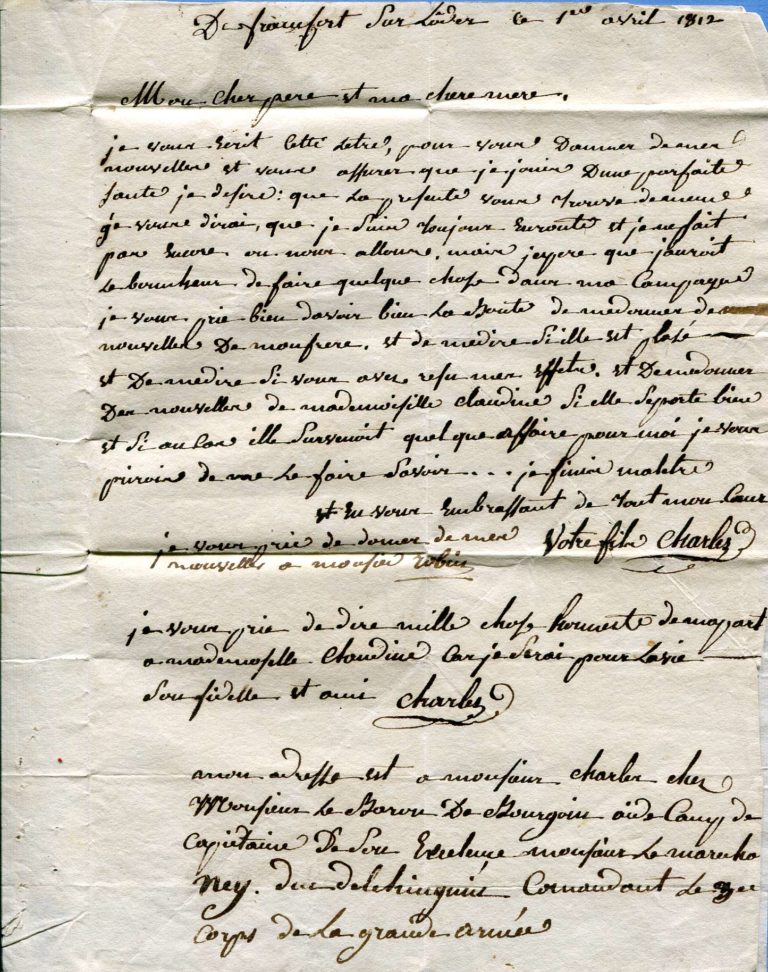 De francfort Sur Lôder ce 1er avril 1812
Mon cher pere et ma chere mere.
je vous Ecrit Cette Letre, pour vous Donner de mes
nouvelles et vous assurer que je jouis Dune parfaite
Santé je desire: que La presente vous trouve de meme
je vous dirai, que je Suis toujour En route et je ne sait
pas Encore ou nous allons. mais jespere que jauroit
Le bonheur de faire quelque chose dans ma Campagne
je vous prie bien davoir bien La Bonté de medonner de
nouvelles De mon frere. et de me dire Si ille est plasé
et De me dire Si vous aves resu mes effets. et De me donner
Des nouvelles de mademoiselle Claudine Si elle Se porte bien
et Si au Cas ille Survenoit quelque affaire pour moi je vous
prirois de me Le faire Savoir ... je finis ma letre
et En vous Embrassant de tout mon Cœur
je vous prie de donner de mes Votre fils Charles
nouvelles a monsier Robin
je vous prie de dire mille chose honneste de ma part
a mademoselle Claudine Car je Serai pour La vie
Son fidelle et ami Charles
mon adresse est a monsieur Charles chez
Monsieur Le Baron De Bourgoin aide Camp de
Capitaine De Son Excelence monsieur Le marecha
Ney. duc delchinguin Comandant Le 3e
Corps de La grande armée